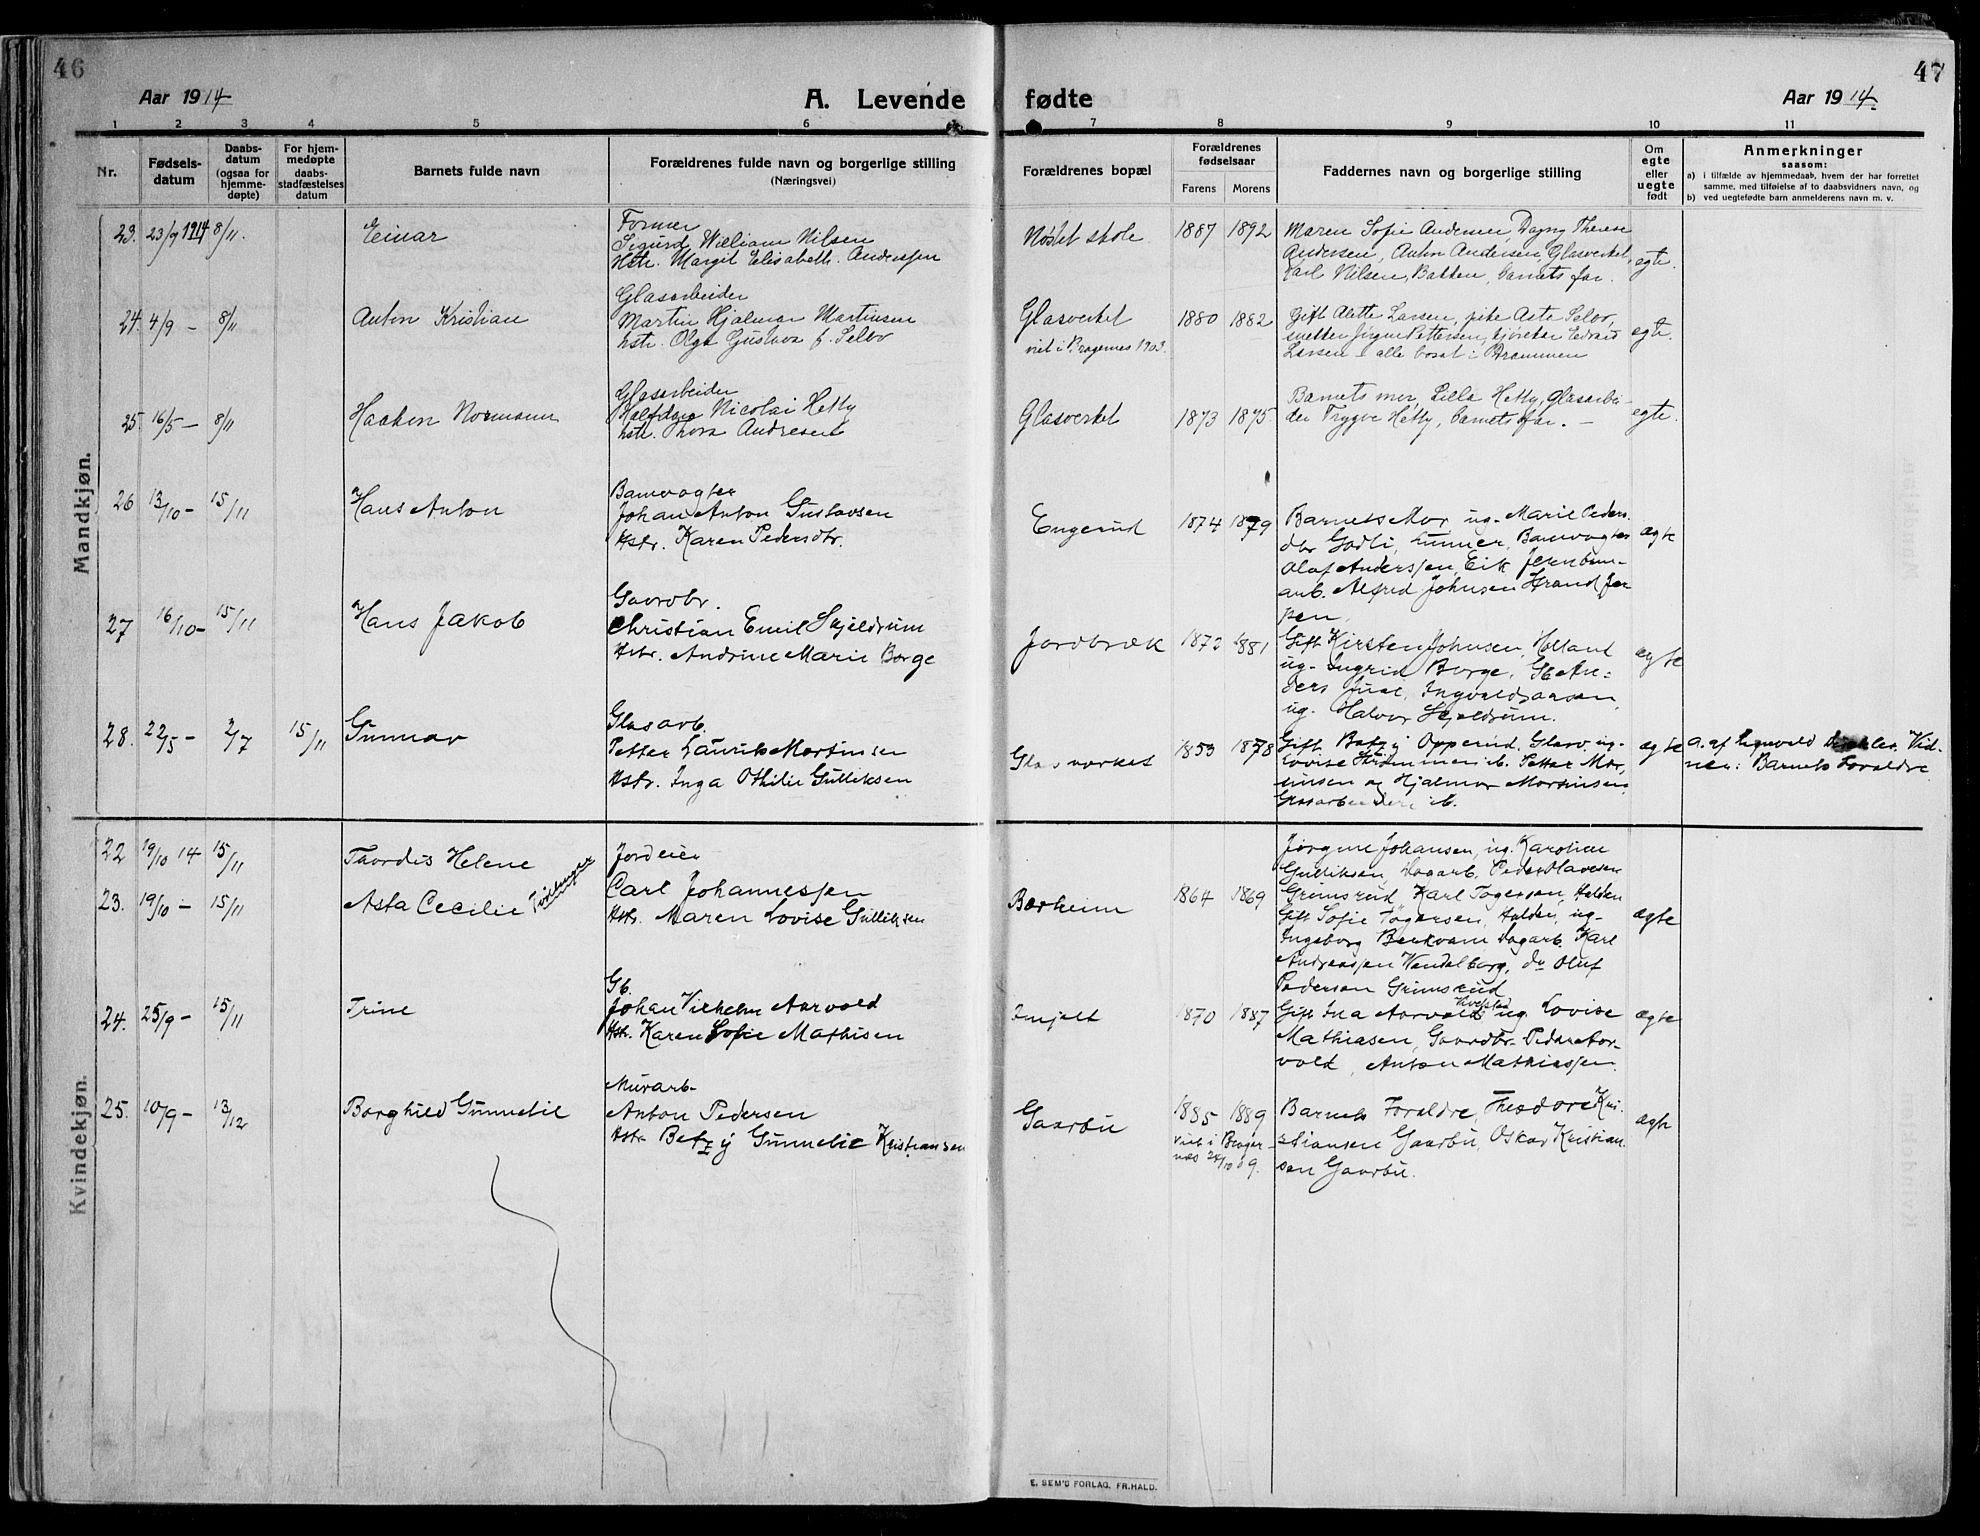 46
47
Aar 1914
A. Levende
fødte
Aar 1914.
1 2 3 4 5 6 7 8 9 10 11
Nr.
Fødsels-
datum
Daabs-
datum
(ogsaa for
hjemme-
døpte)
For hjem-
medøpte
daabs-
stadfæstelses
datum
Barnets fulde navn
Forældrenes fulde navn og borgerlige stilling
(Næringsvei)
Forældrenes bopæl
Forældrenes
fødselsaar
Farens Morens
Faddernes navn og borgerlige stilling
Om
egte
eller
uegte
født
Anmerkninger
saasom:
a) i tilfælde av hjemmedaab, hvem der har forrettet
samme, med tilføielse af to daabsvidners navn, og
b) ved uegtefødte barn anmelderens navn m. v.
Mandkjøn.
23. 23/9 1914 8/11. Einar
Former
Sigurd William Nilsen
Hstr. Margit Elisabeth Anderssen
Nøstet skole 1887 1892
Maren Sofie Andersen, Dagny Therese
Andersen, Anton Andersen Glasverket,
Karl Nilsen, Bakken, barnets far.
egte.
24. 4/9 — 8/11 Anton Kristian
Glasarbeider
Martin Hjalmar Martinsen
hstr. Olga Gustava f. Selbo
Glasverket 1880 1882
viet i Bragernes 1903.
Gift Alette Larsen, pike Asta Selbo,
snekker Jørgen Pettersen, kjøreker Edvard
Larsen alle bosat i Drammen
egte.
25. 16/5 — 8/11 Haakon Normann
Glasarbeider
Halfdan Nicolai Hetty
hstr. Thora Andresen
Glasverket 1873 1875.
Barnets mor, Lilla Hetty, glasarbei-
der Trygve Hetty, barnets far. —
egte.
26 13/10 - 15/11 Hans Anton
Banevogter
Johan Anton Gustavsen
Hstr. Karen Pedersdtr.
Engerud 1874 1879
Barnets Mor, ug. Marie Peders.
dtr Godli, Lunner, Banevogter
Olaf Anderssen, Eik Jernban-
arb. Alfred Johnsen Strand Jer
pen.
ægte
27 16/10 - 15/11 Hans Jakob
Gaardbr.
Christian Emil Skjeldrum
Hstr. Andrine Marie Borge
Jordbræk 1872 1881
Gift Kirsten Johnsen, Holland
ug. Ingrid Borge, Gb An-
ders Juul, Ingvald Aasen,
ug. Halvor Skjeldrum.
ægte
28. 22/5 - 2/7 15/11 Gunnar
Glasarb.
Petter Laurits Martinsen
Hstr. Inga Othilie Gulliksen
Glasverket 1853 1878
Gift Betzy Opperud. Glasv. ug.
Lovise Strømmen ib. Petter Mar-
tinsen og Hjalmar Martinsen,
Glasarbeidere ib.
ægte
a. af Vid-
ner: Barnets Foraldre
Kvindekjøn.
22 19/10 14 15/11 Thordis Helene
23. 19/10 - 15/11 Asta Cecilie
Jordeier
Carl Johannessen
Hstr. Maren Lovise Gulliksen
Borheim 1864 1869
Jørgine Johansen, ug. Karoline
Gulliksen, Dagarb. Peder Olavesen
Grimsrud, Karl Togersen, Halden
Gift Sofie Togersen, Halden, ug-
Ingeborg Berkvam Dagarb. Karl
Andreassen Vendelborg, do Oluf
Pedersen Grimsrud
ægte
24. 25/9 - 15/11 Trine
Gb.
Johan Vilhelm Aarvold
Hstr. Karen Sofie Mathisen
1870 1887
Gift Ina Aarvold, ug. Lovise
Mathiasen, Gaardbr. Peder Aar-
vold, Anton Mathiassen.
ægte
25. 10/9 - 13/12 Borghild Gunnelie
Murarb-
Anton Pedersen
Hstr Betzy Gunnelie Kristiansen
Gaarbu 1885 1889
viet i Brager-
næs 24/10 09.
Barnets Foraldre, Theodore Kri-
stiansen Gaarbu, Oskar Kristian
sen Gaarbu.
ægte
E. SEM'S FORLAG, FR.HALD.